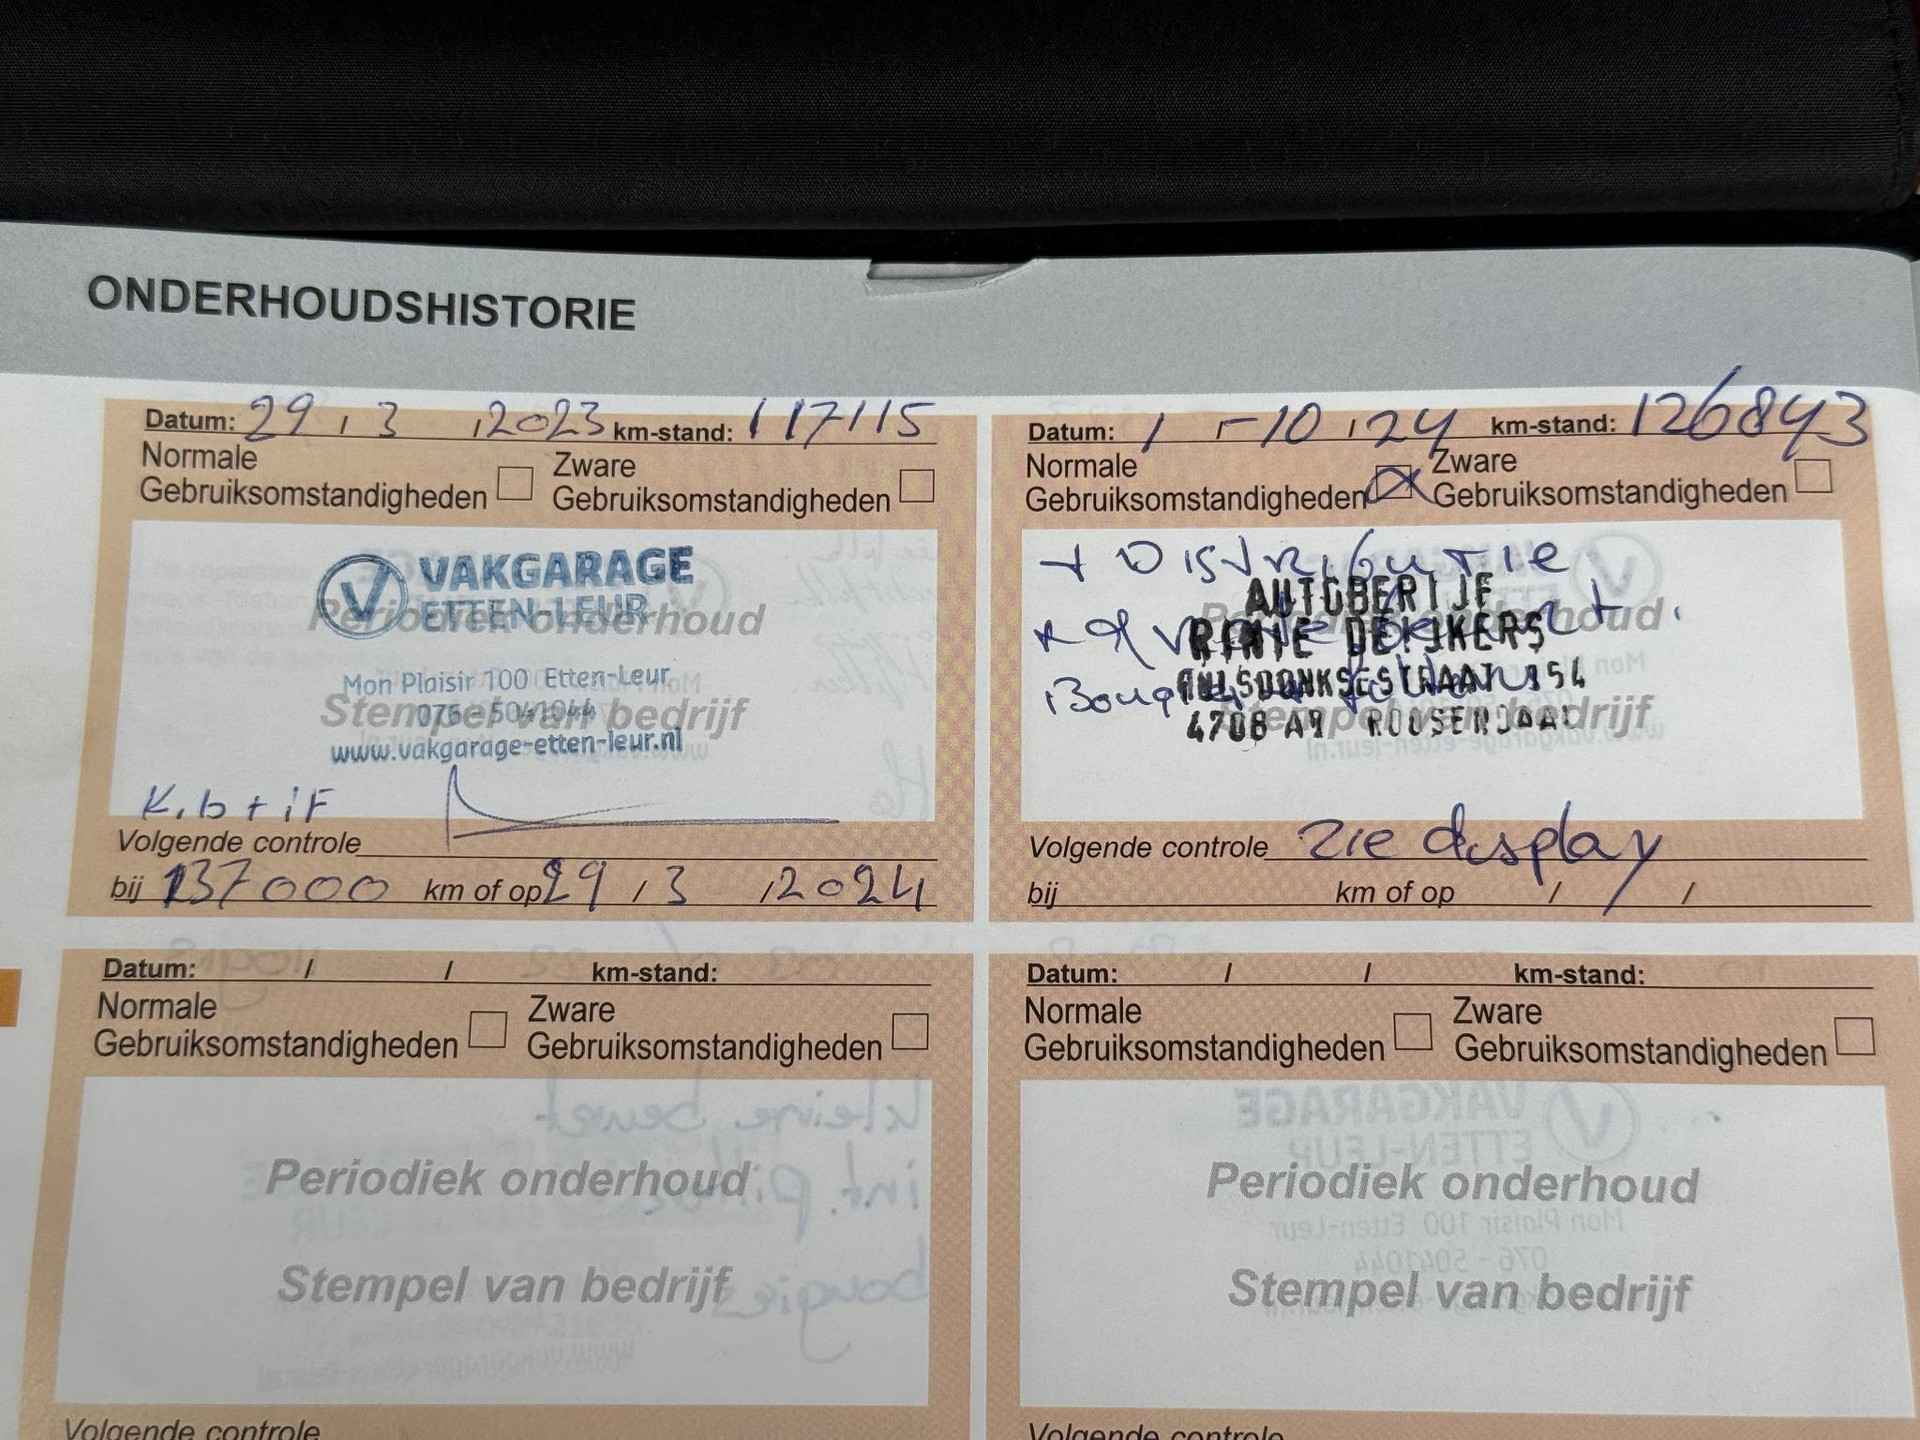 ONDERHOUDSHISTORIE
Datum: 29 / 3 / 2023 km-stand: 117115
Normale
Gebruiksomstandigheden
Zware
Gebruiksomstandigheden
VAKGARAGE
ETTEN-LEUR
Periodiek onderhoud
Mon Plaisir 100 Etten-Leur
076 - 5041044
Stempel van bedrijf
www.vakgarage-etten-leur.nl
K.b + iF
Volgende controle
bij 137000 km of op 29 / 3 / 2024
Datum: 1 -10 / 24 km-stand: 126843
Normale
Gebruiksomstandigheden
Zware
Gebruiksomstandigheden
+ Distributie
AUTOBEDRIJF
Periodiek onderhoud
RINIE
154
Stempel van bedrijf
4708 ROOSENDAAL
Volgende controle zie display
bij km of op / /
Datum: / / km-stand:
Normale
Gebruiksomstandigheden
Zware
Gebruiksomstandigheden
Periodiek onderhoud
Stempel van bedrijf
Volgende controle
Datum: / / km-stand:
Normale
Gebruiksomstandigheden
Zware
Gebruiksomstandigheden
Periodiek onderhoud
Stempel van bedrijf
Volgende controle